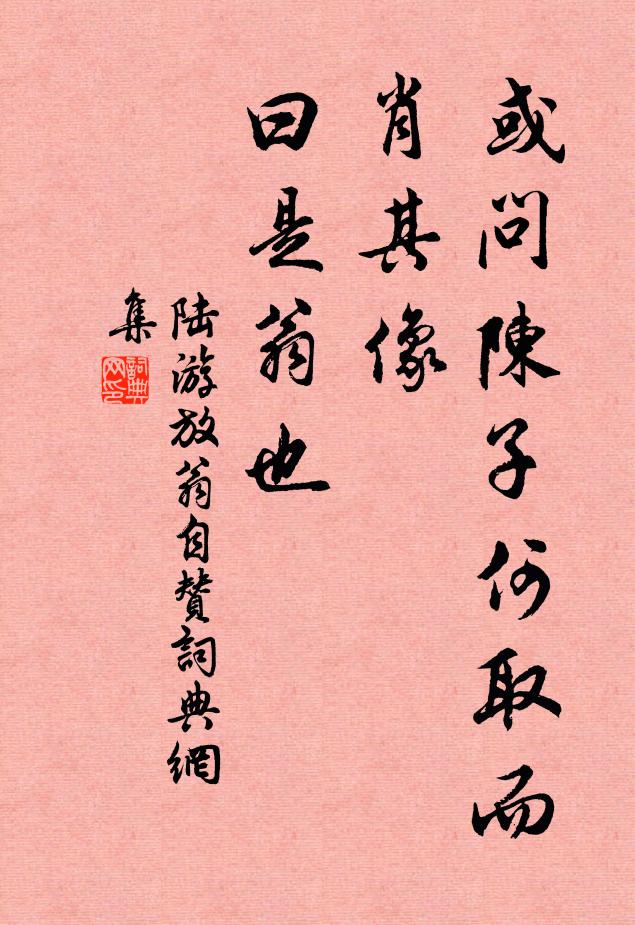 或問陳子何取而
肖其像
曰是翁也
陆游放翁自賛詞典網
集
詞典网印